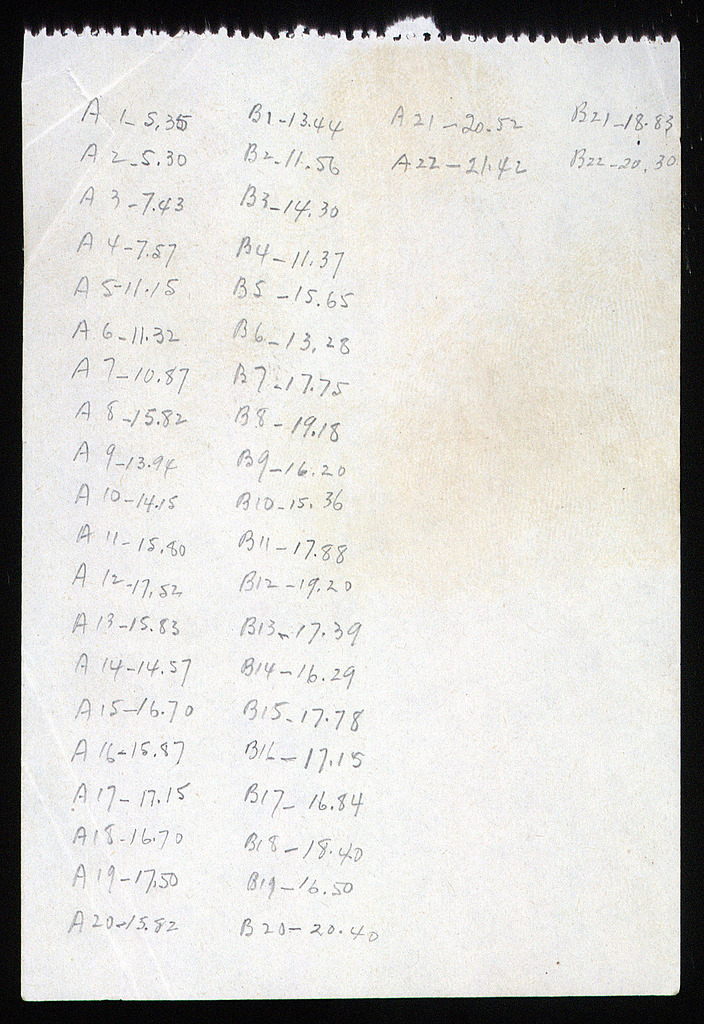 A 1-5.35 B1-13.44 A21-20.52 B21-18.83
A 2-5.30 B2-11.56 A22-21.42 B22-20.30
A 3-7.43 B3-14.30
A 4-7.57 B4-11.37
A 5-11.15 B5-15.65
A 6-11.32 B6-13.28
A 7-10.87 B7-17.75
A 8-15.82 B8-19.18
A 9-13.94 B9-16.20
A 10-14.15 B10-15.36
A 11-15.80 B11-17.88
A 12-17.52 B12-19.20
A 13-15.83 B13-17.39
A 14-14.57 B14-16.29
A 15-16.70 B15-17.78
A 16-15.87 B16-17.15
A 17-17.15 B17-16.84
A 18-16.70 B18-18.40
A 19-17.50 B19-16.50
A 20-15.82 B20-20.40